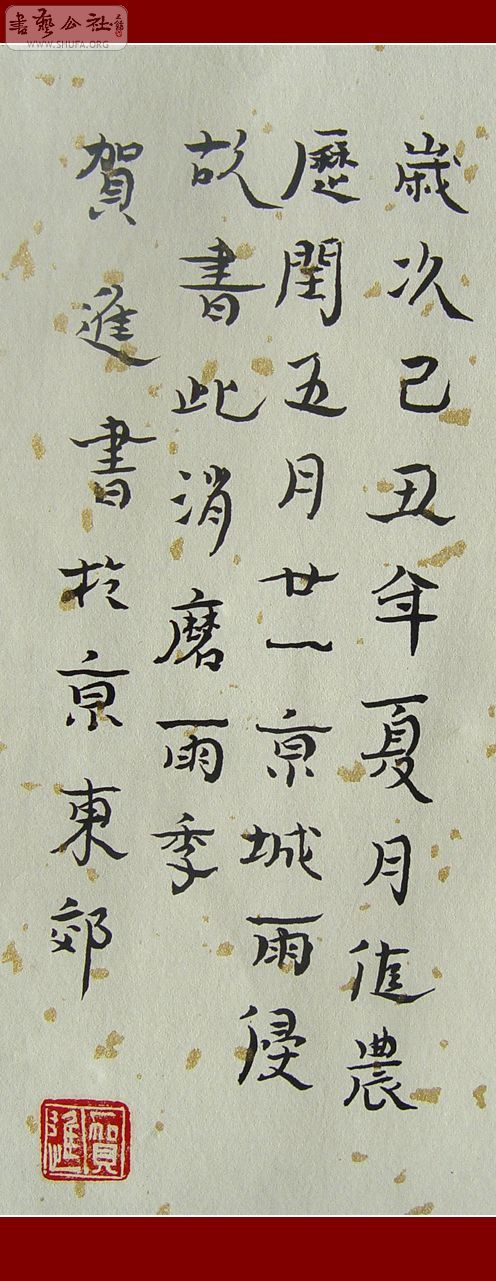 書藝公社
WWW.SHUFA.ORG
歲次己丑年夏月值農
歷閏五月廿一京城雨侵
故書此消磨雨季
賀進書於京東郊
賀進